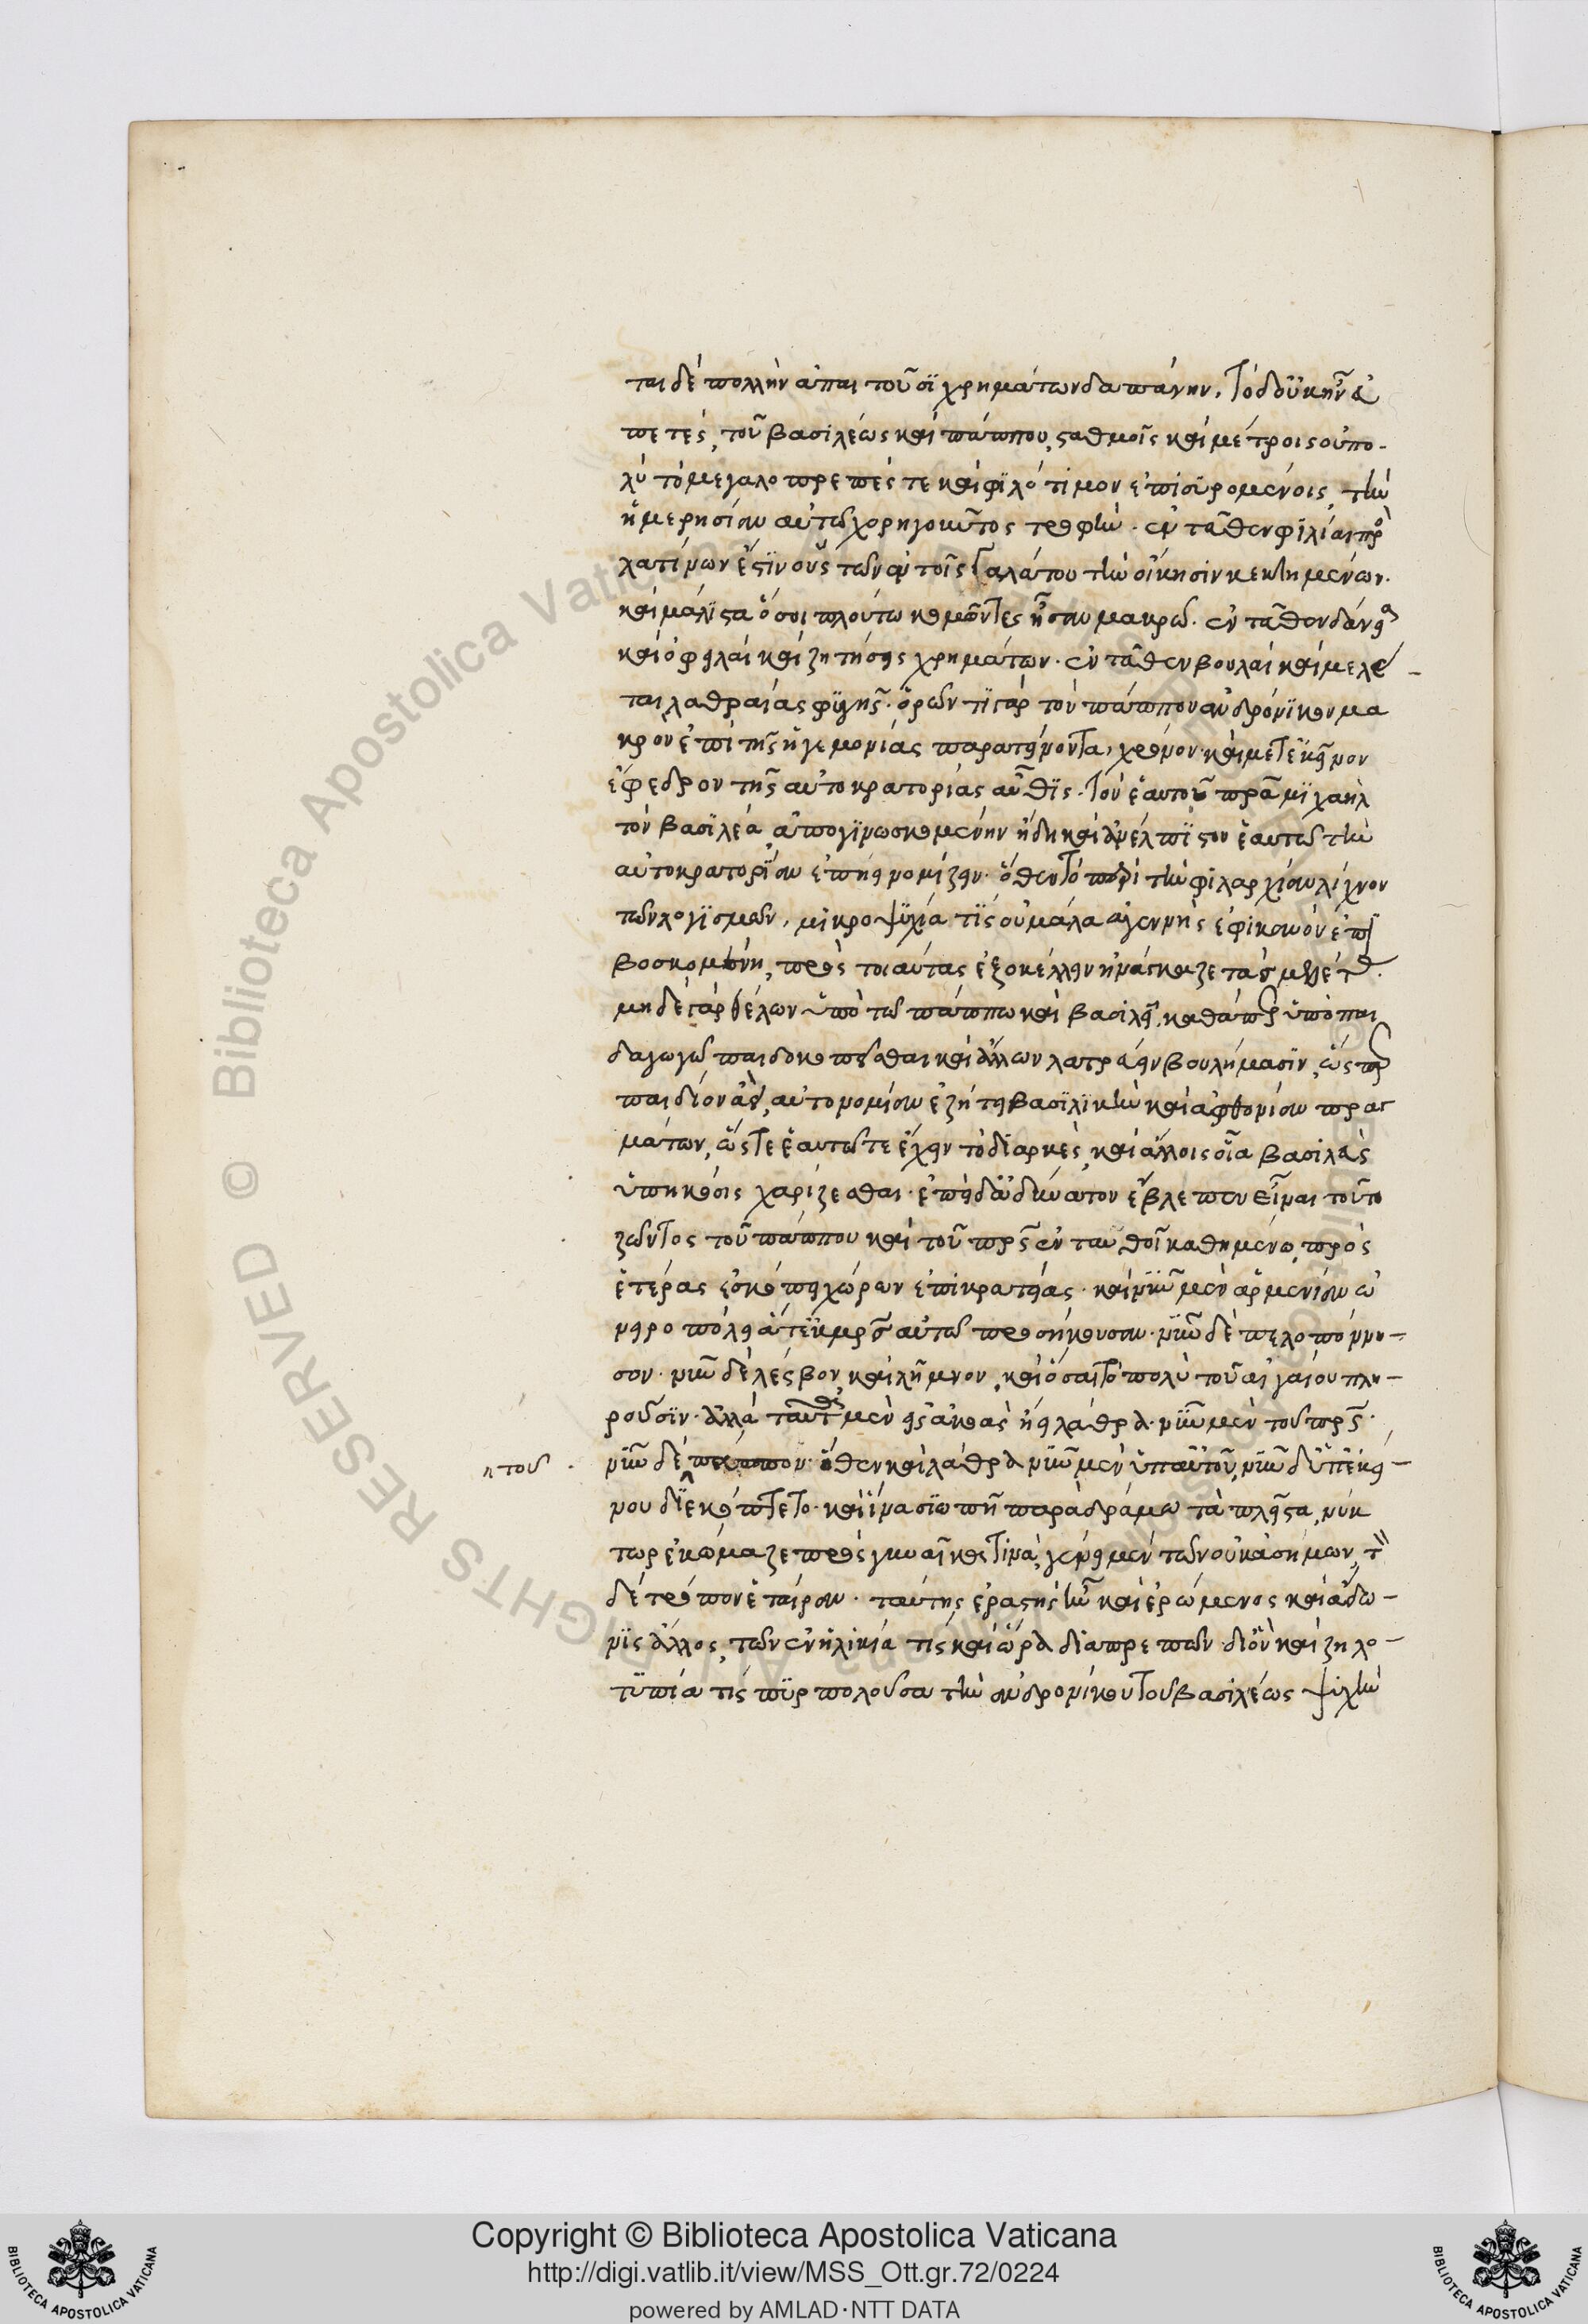 ται δὲ πολλὴν ἀπαιτοῦσι χρημάτων δαπάνην. τὸ δ' οὐκ ἦν εὐ
πετὲς, τοῦ βασιλέως καὶ πάππου, σταθμοῖς καὶ μέτροις οὐ πο-
λὺ τὸ μεγαλοπρεπές τε καὶ φιλότιμον ἐπισυρομένοις, τὴν
ἡμερησίαν αὐτῶ χορηγοῦντος τροφήν. ἐνταῦθεν φιλίαι πρὸ
λατίνων ἐστὶν οὓς τῶν ἐν τοῖς Γαλάτου τὴν οἴκησιν κεκτημένων.
καὶ μάλιστα ὅσοι πλούτω κομῶντες ἦσαν μακρῶ. ἐνταῦθεν δάνεια
καὶ ὀφειλαὶ καὶ ζητήσεις χρημάτων. ἐνταῦθεν βουλαὶ καὶ μελέ-
ται λαθραίας φυγῆς. ὁρῶν τι γὰρ τὸν πάππον ἀνδρόνικον μα
κρὸν ἐπὶ τῆς ἡγεμονίας παρατείνοντα χρόνον. καὶ μετ' ἐκεῖνον
ἔφεδρον τῆς αὐτοκρατορίας αὖθις. τὸν ἑαυτοῦ πρα μιχαὴλ
τὸν βασιλέα, ἀπογινωσκομένην ἤδη καὶ ἀνέλπιστον ἑαυτῶ τὴν
αὐτοκρατορίαν ἐποίει νομίζειν. ὅθεν τὸ περὶ τὴν φιλαρχίαν λίχνον
τῶν λογισμῶν, μικροψυχία τίς οὐ μάλα ἀγεννὴς ἐφικανὸν ἐπι
βοσκομένη, πρὸς τοιαύτας ἐξοκέλλειν ἠνάγκαζε τὰς μελέτας.
μηδὲ γὰρ θέλων ὑπὸ τῶ πάππω καὶ βασιλεῖ, καθάπερ ὑπὸ παι
δαγωγῶ παιδοκομεῖσθαι καὶ ἄλλων λατρεύειν βουλήμασιν, ὥσπερ
παιδίον ἀεὶ, αὐτονομίαν ἐζήτει βασιλικὴν καὶ ἀφθονίαν πραγ
μάτων, ὥστε ἑαυτῶ τε ἔχειν τὸ διαρκὲς, καὶ ἄλλοις οἷα βασιλεὺς
ὑπηκόοις χαρίζεσθαι. ἐπεὶ δ' ἀδύνατον ἔβλεπεν εἶναι τοῦτο
ζῶντος τοῦ πάππου καὶ τοῦ πρς ἐνταυθοῖ καθημένω, πρὸς
ἑτέρας ἐσκόπει χώρων ἐπικρατείας. καὶ νῦν μὲν ἀρμενίαν ὠ
νειροπόλει ἅτε ἐκ μρς αὐτῶ προσήκουσαν. νῦν δὲ πελοπόννη-
σον. νῦν δὲ λέσβον καὶ λῆμνον, καὶ ὅσαι τὸ πολὺ τοῦ αἰγαίου πλη-
ροῦσιν. ἀλλὰ ταῦτα μὲν εἰς ἀκοὰς ἤει λάθρα. νῦν μὲν τοῦ πρς.
νῦν δὲ πάππου. ὅθεν καὶ λάθρα νῦν μὲν ὑπ' αὐτοῦ, νῦν δ' ὑπ' ἐκεί-
η του
νου διεκόπτετο. καὶ ἵνα σιωπῆ παραδράμω τὰ πλεῖστα, νύκ
τωρ ἐκώμαζε πρὸς γυναῖκά τινα, γένει μὲν τῶν οὐκ ἀσήμων, τ
δὲ τρόπον ἑταίραν. ταύτης ἐραστὴς ἦν καὶ ἐρώμενος καὶ ἄδω-
νις ἄλλος, τῶν ἐν ἡλικία τις καὶ ὥρα διαπρεπῶν. διὸ καὶ ζηλο-
τυπία τίς πυρπολοῦσα τὴν ἀνδρονίκου τοῦ βασιλέως ψυχὴν
Copyright © Biblioteca Apostolica Vaticana
http://digi.vatlib.it/view/MSS_Ott.gr.72/0224
powered by AMLAD·NTT DATA